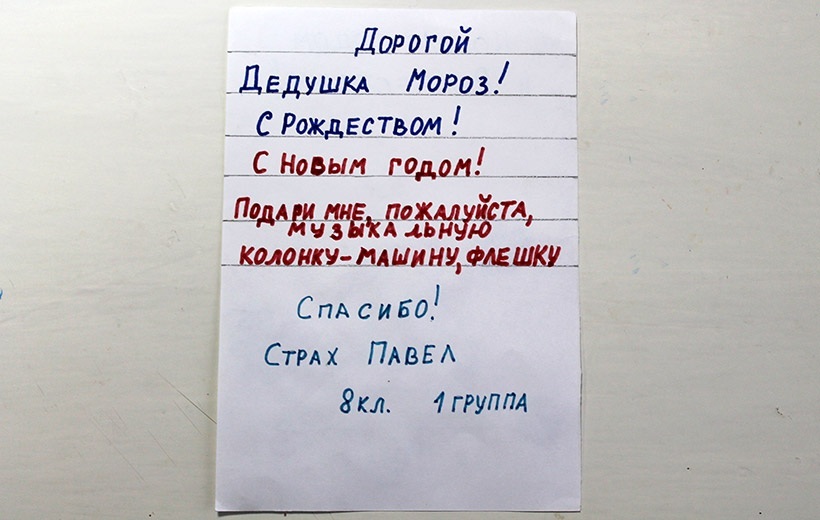 Дорогой
Дедушка Мороз!
С Рождеством!
С Новым годом!
Подари мне, пожалуйста,
музыкальную
колонку-машину, флешку
Спасибо!
Страх Павел
8 кл. 1 группа